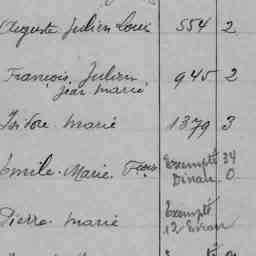 Auguste Julien Louis 554 2
François, Julien 945 2
Jean Marie
Isidore Marie 1379 3
Emile. Marie. Fçois Exempté 34
Dinan 0
Pierre. Marie Exempté
12 Evran